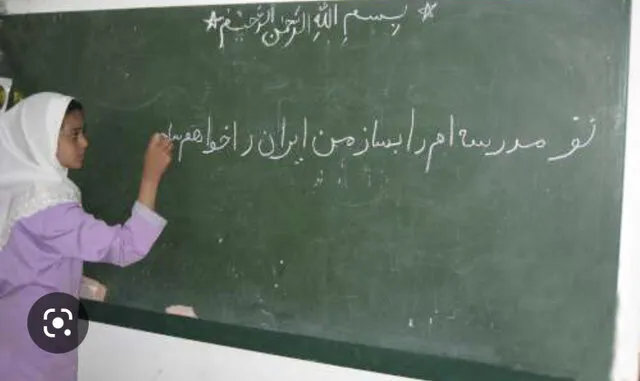 بسم الله الرحمن الرحیم
تو مدرسه ام را بساز من ایران را خواهم